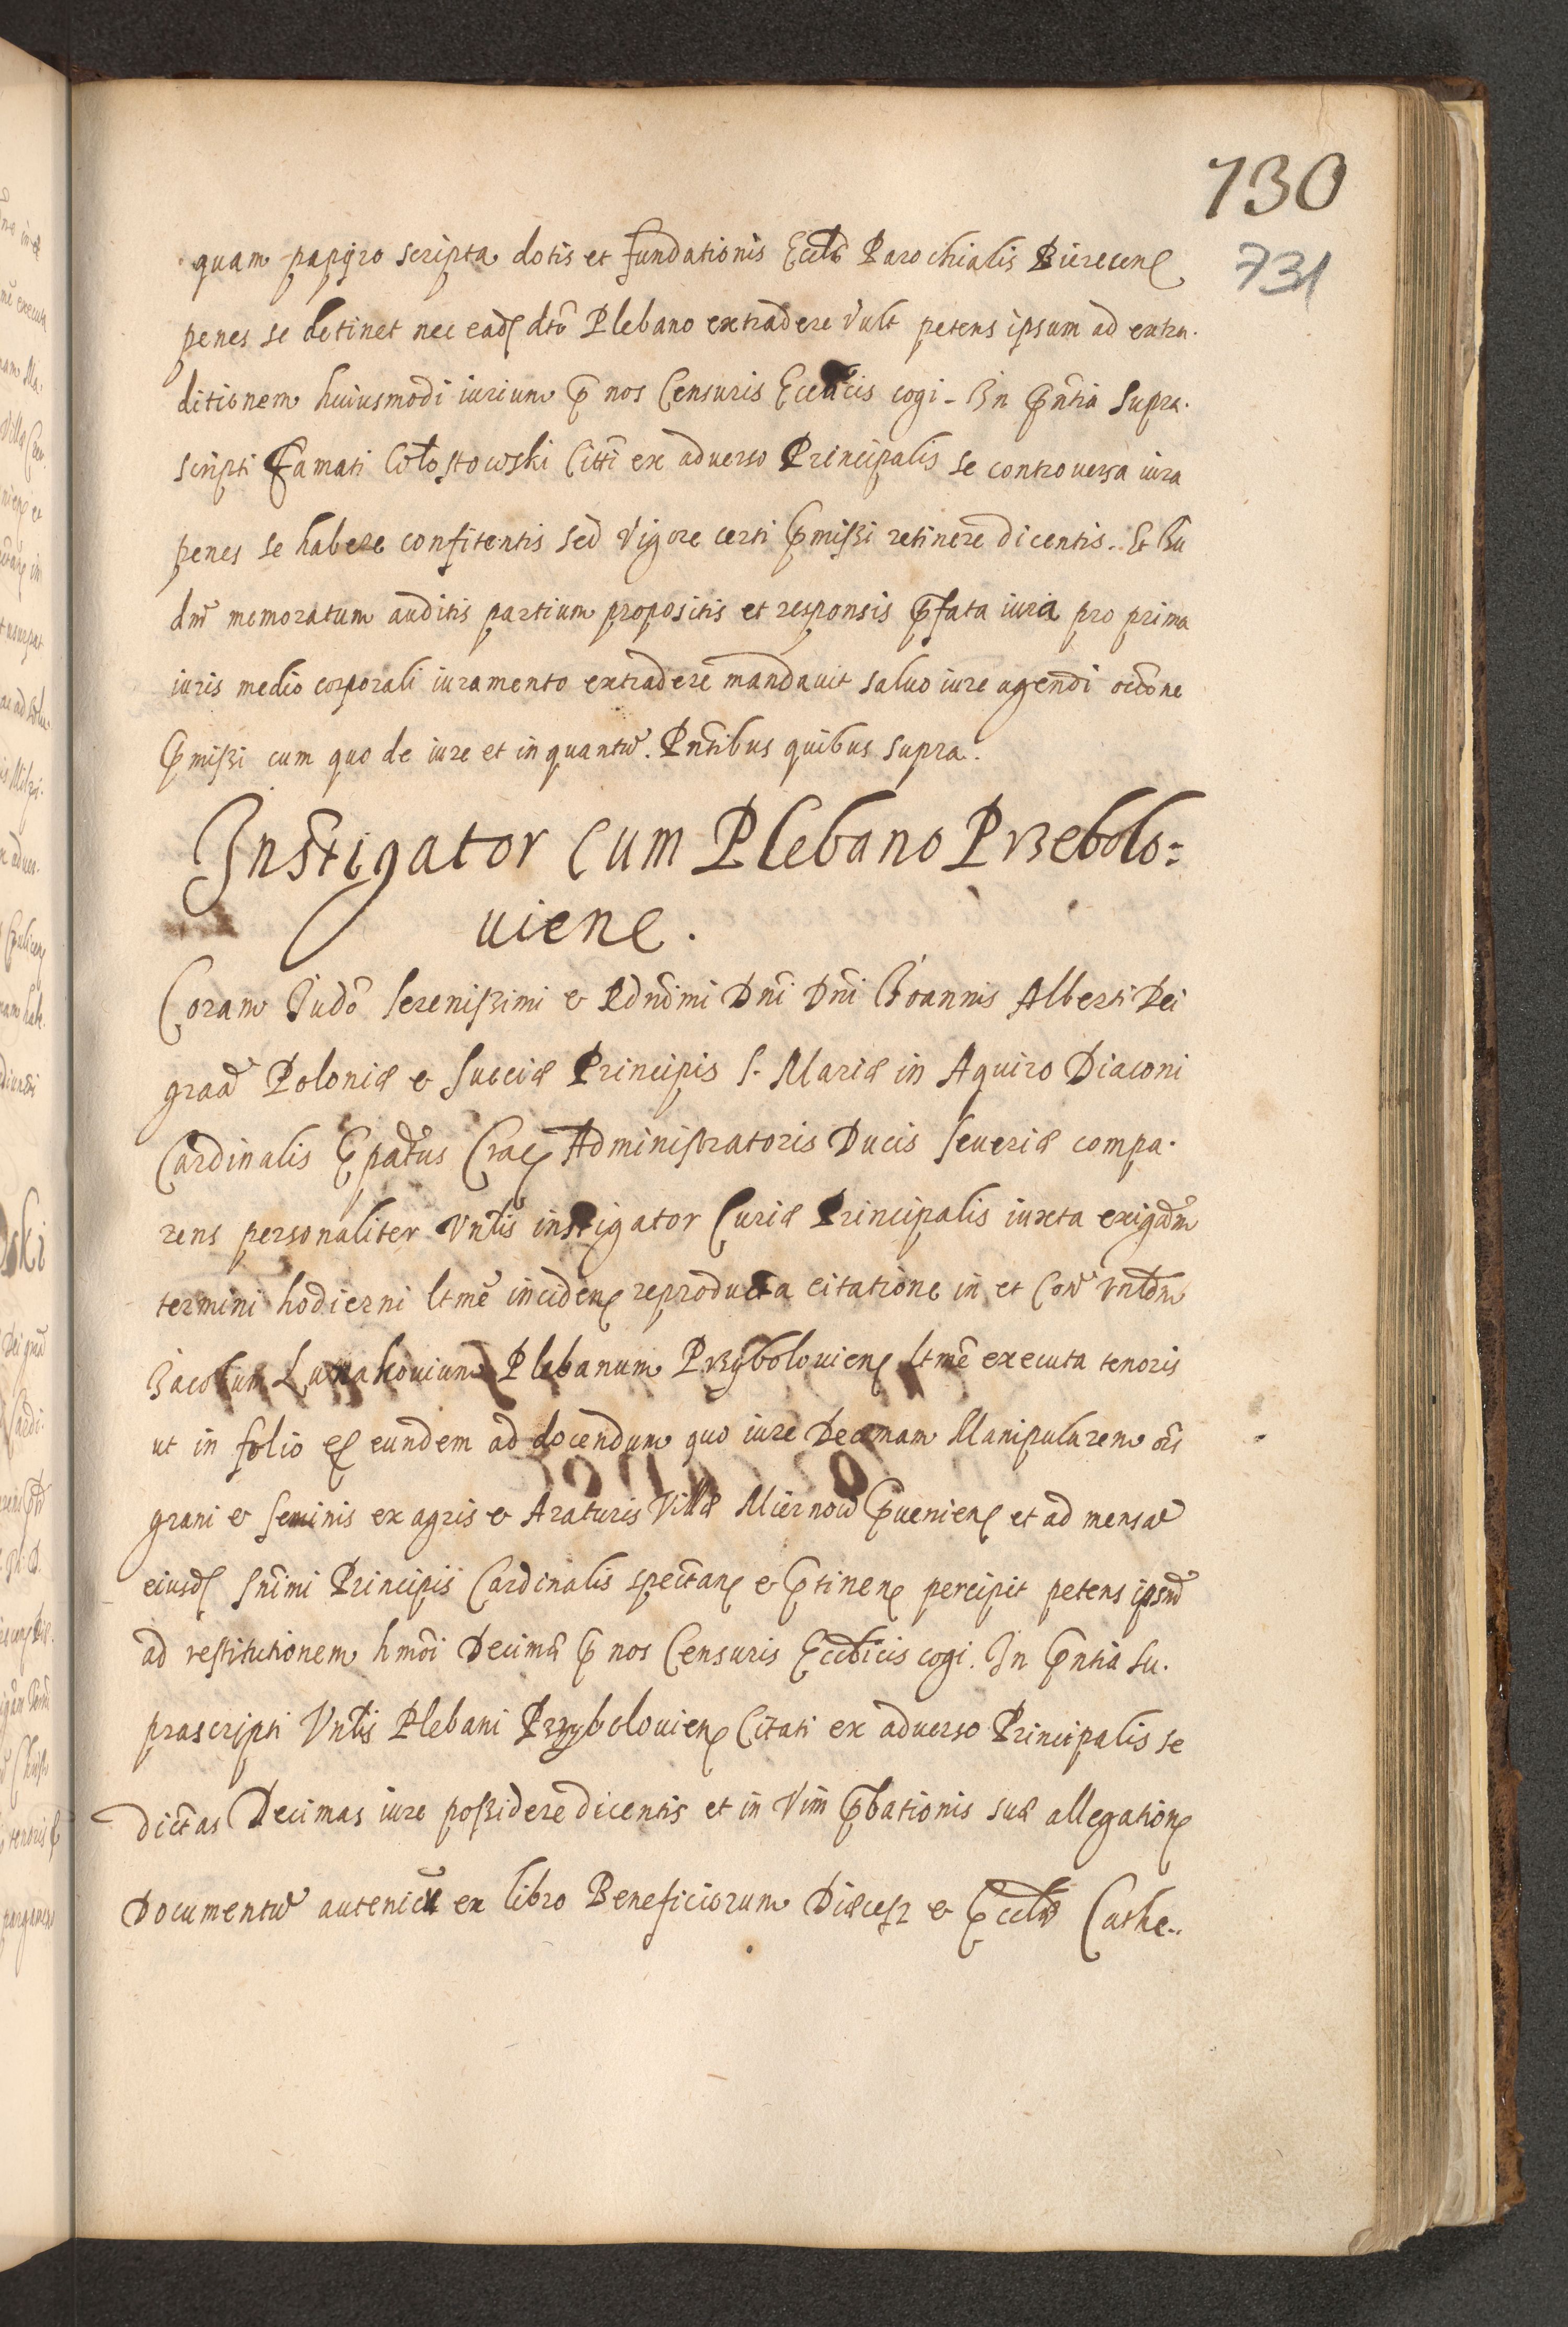 730
731
quam papyro scripta dotis et fundationis Eccłæ Parochialis Bierecen
penes se detinet nec ead dto Plebano extradere vult petens ipsum ad extra.
ditionem huiusmodi iurium p nos Censuris Eccłcis cogi. In Pñtia supra.
scripti Famati Citti ex aduerso Principalis se controuersa iura
penes se habere confitentis sed vigore certi pmissi retinere dicentis. Et
memoratum auditis partium propositis et responsis pfata iuria pro prima
iuris medio corporali iuramento extradere mandauit saluo iure agendi occõne
pmissi cum quo de iure et in quantũ. Pñtibus quibus supra.
Instigator Cum Plebano Przebolo=
uien.
Coram Judō Serenissimi & Rdñdimi Dñi Dñi Ioannis Alberti Dei
graã Poloniæ & Sueciæ Principis S. Mariæ in Aquiro Diaconi
Cardinalis Epatus Crac Administratoris Ducis Seueriæ compa.
rens personaliter Vnlis instigator Curiæ Principalis iuxta exigãm
termini hodierni ltmē inciden reproducta citatione in et Con vnldm
Iacobum Plebanum Przybolouien ltmē executa tenoris
ut in folio & eundem ad docendum quo iure Decimam Manipularem oĩs
grani & Seminis ex agris & Araturis Villæ Miernow puenien et ad mensã
eiusd Snĩmi Principis Cardinalis spectan & ptinen percipit petens ipsũ
ad restitutionem hmõi Decimæ p nos Censuris Ecclicis cogi. In pñtia su.
prascripti Vnlis Plebani Przybolouien Citati ex aduerso Principalis se
dictas Decimas iure possidere dicentis et in vim pbationis suæ allegation
Documentũ autenicũ ex libro Beneficiorum Diæces & Eccłæ Cathe..